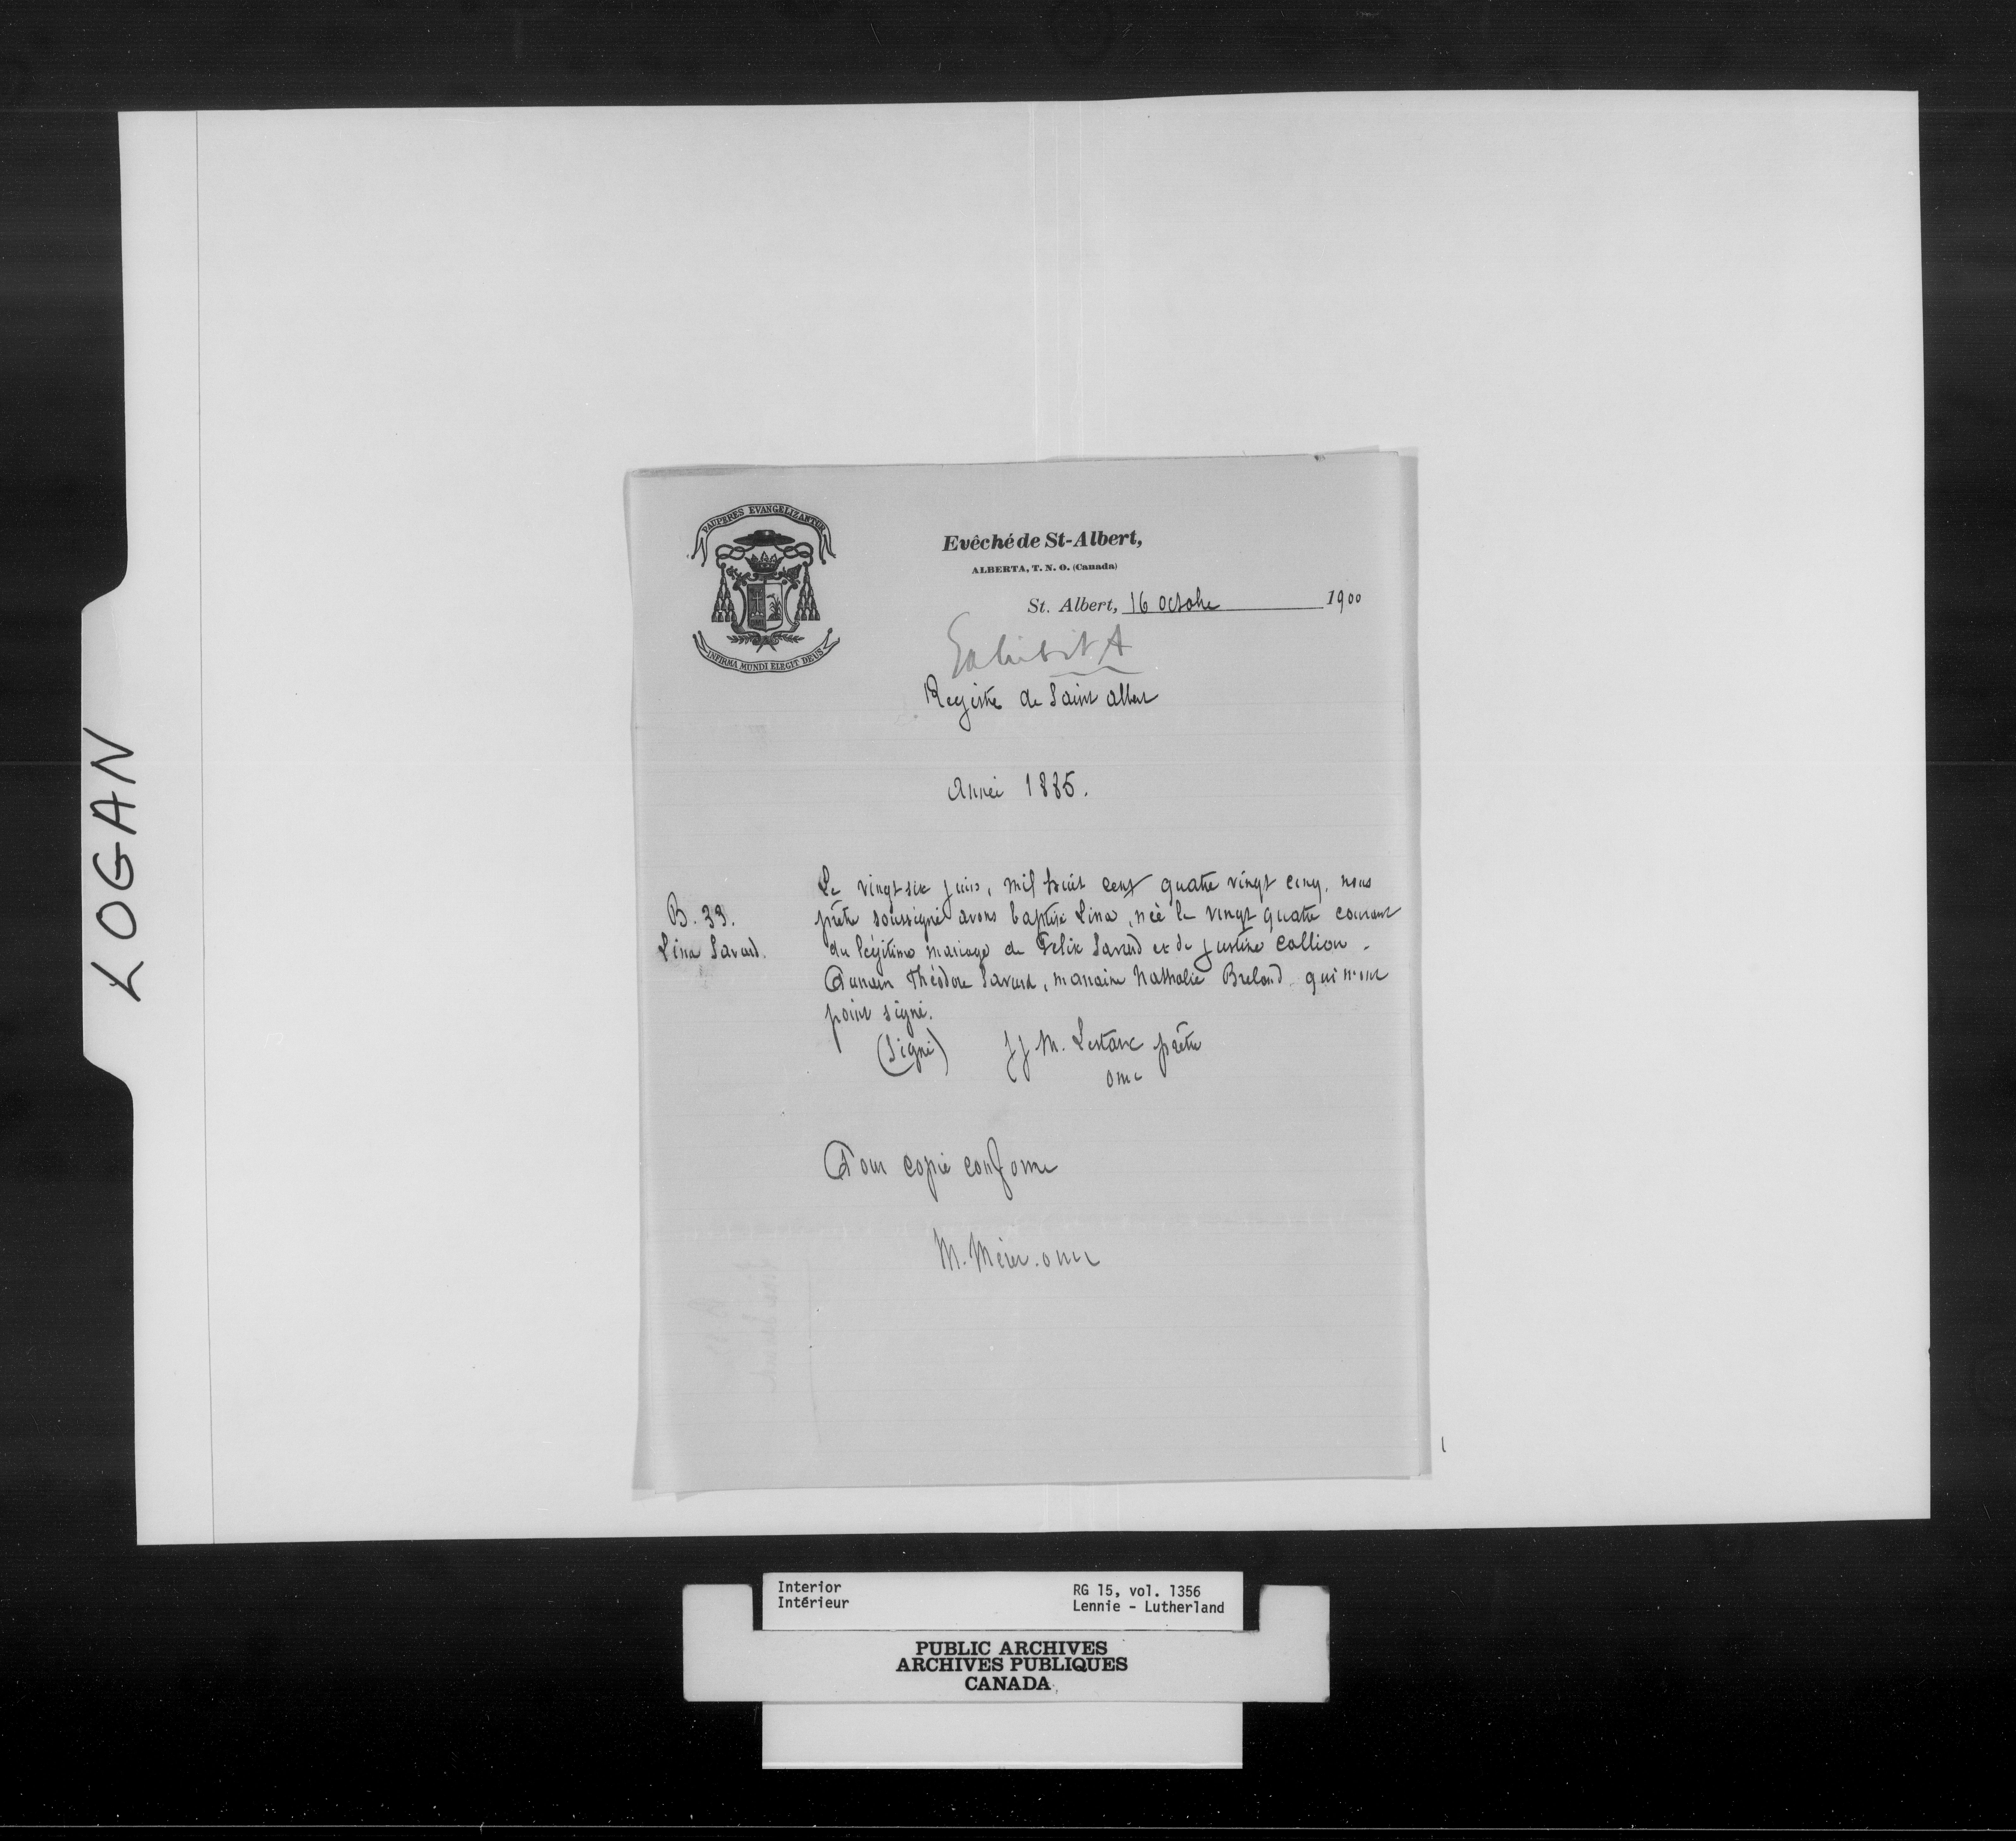 LOGAN
PAUPERES EVANGELIZANTUR
INFIRMA MUNDI ELEGIT DEUS
Evêché de St-Albert,
ALBERTA, T. N. O. (Canada)
St. Albert, 16 Octobre 1900
Exhibit A
Registre de Saint Albert
Année 1885.
B. 33.
Lina Savard.
Le vingt six juin, mil huit cent quatre vingt cinq, nous
prêtre soussigné avons baptisé Lina, née le vingt quatre courant
du légitime mariage de Felix Savard et de Justine Callion.
Parrain Théodore Savard, marraine Nathalie Breland qui n'ont
point signé.
(Signé) J J M. Lestanc prêtre
omi
Pour copie conforme
M. Mérer. omi
Interior
Intérieur
RG 15, vol. 1356
Lennie - Lutherland
PUBLIC ARCHIVES
ARCHIVES PUBLIQUES
CANADA